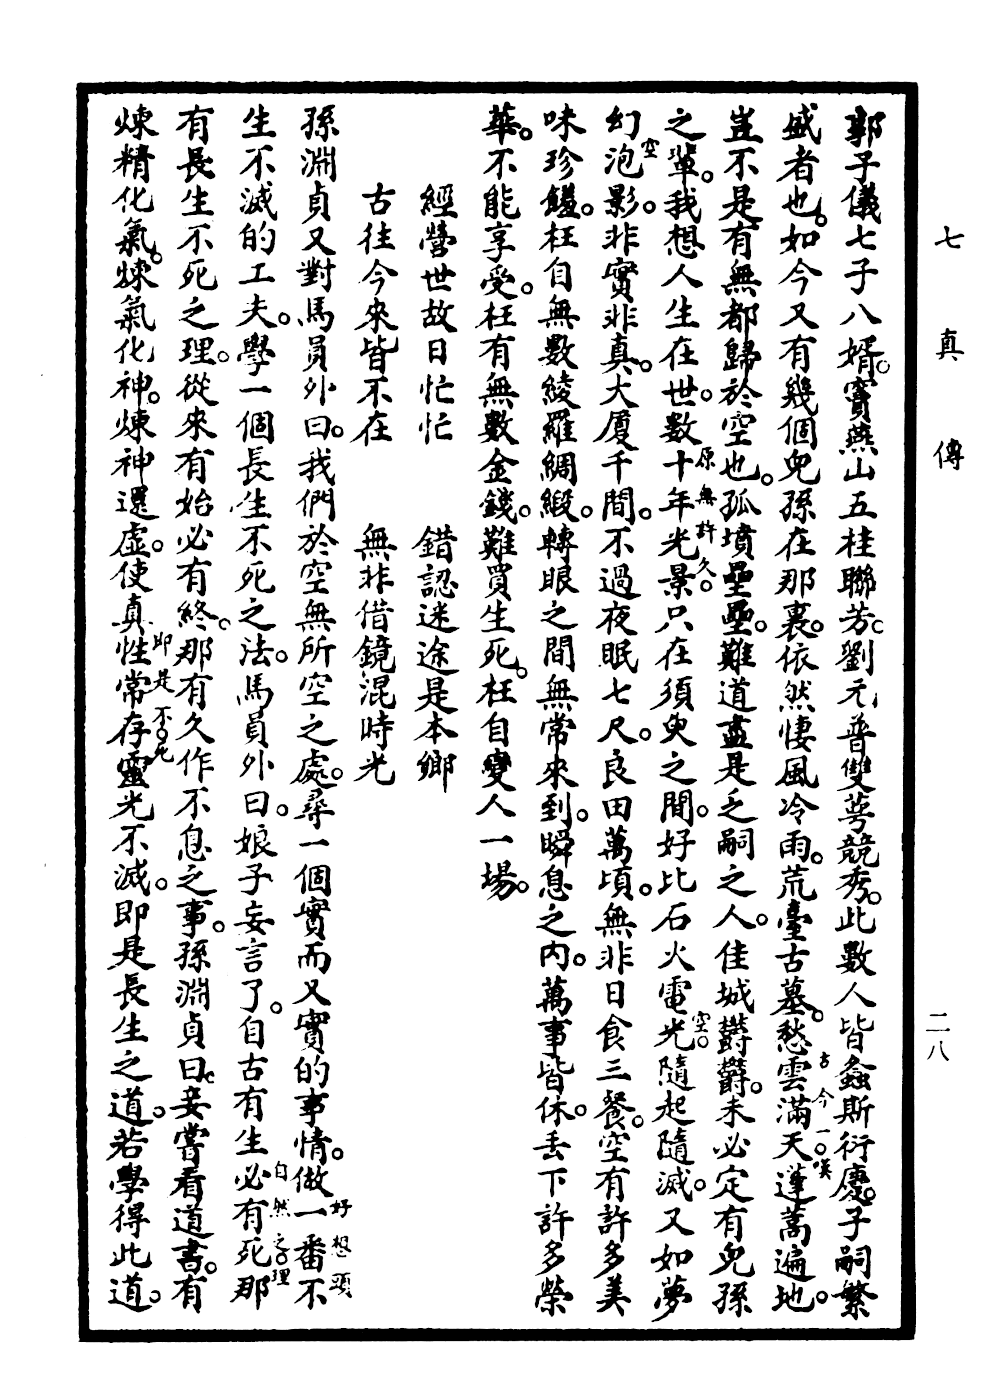 七真傳
二八
郭子儀七子八婿。竇燕山五桂聯芳。劉元普雙萼競秀。此數人皆螽斯衍慶。子嗣繁
盛者也。如今又有幾個兒孫在那裏。依然悽風冷雨。荒臺古墓。愁雲滿天。蓬蒿遍地。
古今一嘆
豈不是有無都歸於空也。孤墳壘壘。難道盡是乏嗣之人。佳城欝欝。未必定有兒孫
之輩。我想人生在世。數十年光景。只在須臾之間。好比石火電光。隨起隨滅。又如夢
原無許久。
空。
幻泡影。非實非真。大厦千間。不過夜眠七尺。良田萬頃。無非日食三餐。空有許多美
空
味珍饈。枉自無數綾羅綢緞。轉眼之間無常來到。瞬息之内。萬事皆休。丢下許多榮
華。不能享受。枉有無數金錢。難買生死。枉自變人一場。
經營世故日忙忙　錯認迷途是本鄉
古往今來皆不在　無非借鏡混時光
孫淵貞又對馬員外曰。我們於空無所空之處。尋一個實而又實的事情。做一番不
好想頭
生不滅的工夫。學一個長生不死之法。馬員外曰。娘子妄言了。自古有生必有死。那
自然之理
有長生不死之理。從來有始必有終。那有久作不息之事。孫淵貞曰。妾嘗看道書。有
煉精化氣。煉氣化神。煉神還虛。使真性常存。靈光不滅。即是長生之道。若學得此道。
即是不死